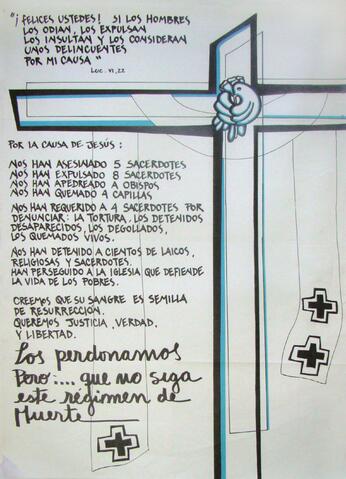 "¡FELICES USTEDES! SI LOS HOMBRES
LOS ODIAN, LOS EXPULSAN
LOS INSULTAN Y LOS CONSIDERAN
UNOS DELINCUENTES
POR MI CAUSA"
Luc. VI, 22
POR LA CAUSA DE JESÚS :
NOS HAN ASESINADO 5 SACERDOTES
NOS HAN EXPULSADO 8 SACERDOTES
NOS HAN APEDREADO A OBISPOS
NOS HAN QUEMADO 4 CAPILLAS
NOS HAN REQUERIDO A 4 SACERDOTES POR
DENUNCIAR: LA TORTURA, LOS DETENIDOS
DESAPARECIDOS, LOS DEGOLLADOS,
LOS QUEMADOS VIVOS.
NOS HAN DETENIDO A CIENTOS DE LAICOS,
RELIGIOSAS Y SACERDOTES.
HAN PERSEGUIDO A LA IGLESIA QUE DEFIENDE
LA VIDA DE LOS POBRES.
CREEMOS QUE SU SANGRE ES SEMILLA
DE RESURRECCIÓN.
QUEREMOS JUSTICIA, VERDAD,
Y LIBERTAD.
Los perdonamos
Pero:... que no siga
este régimen de
Muerte